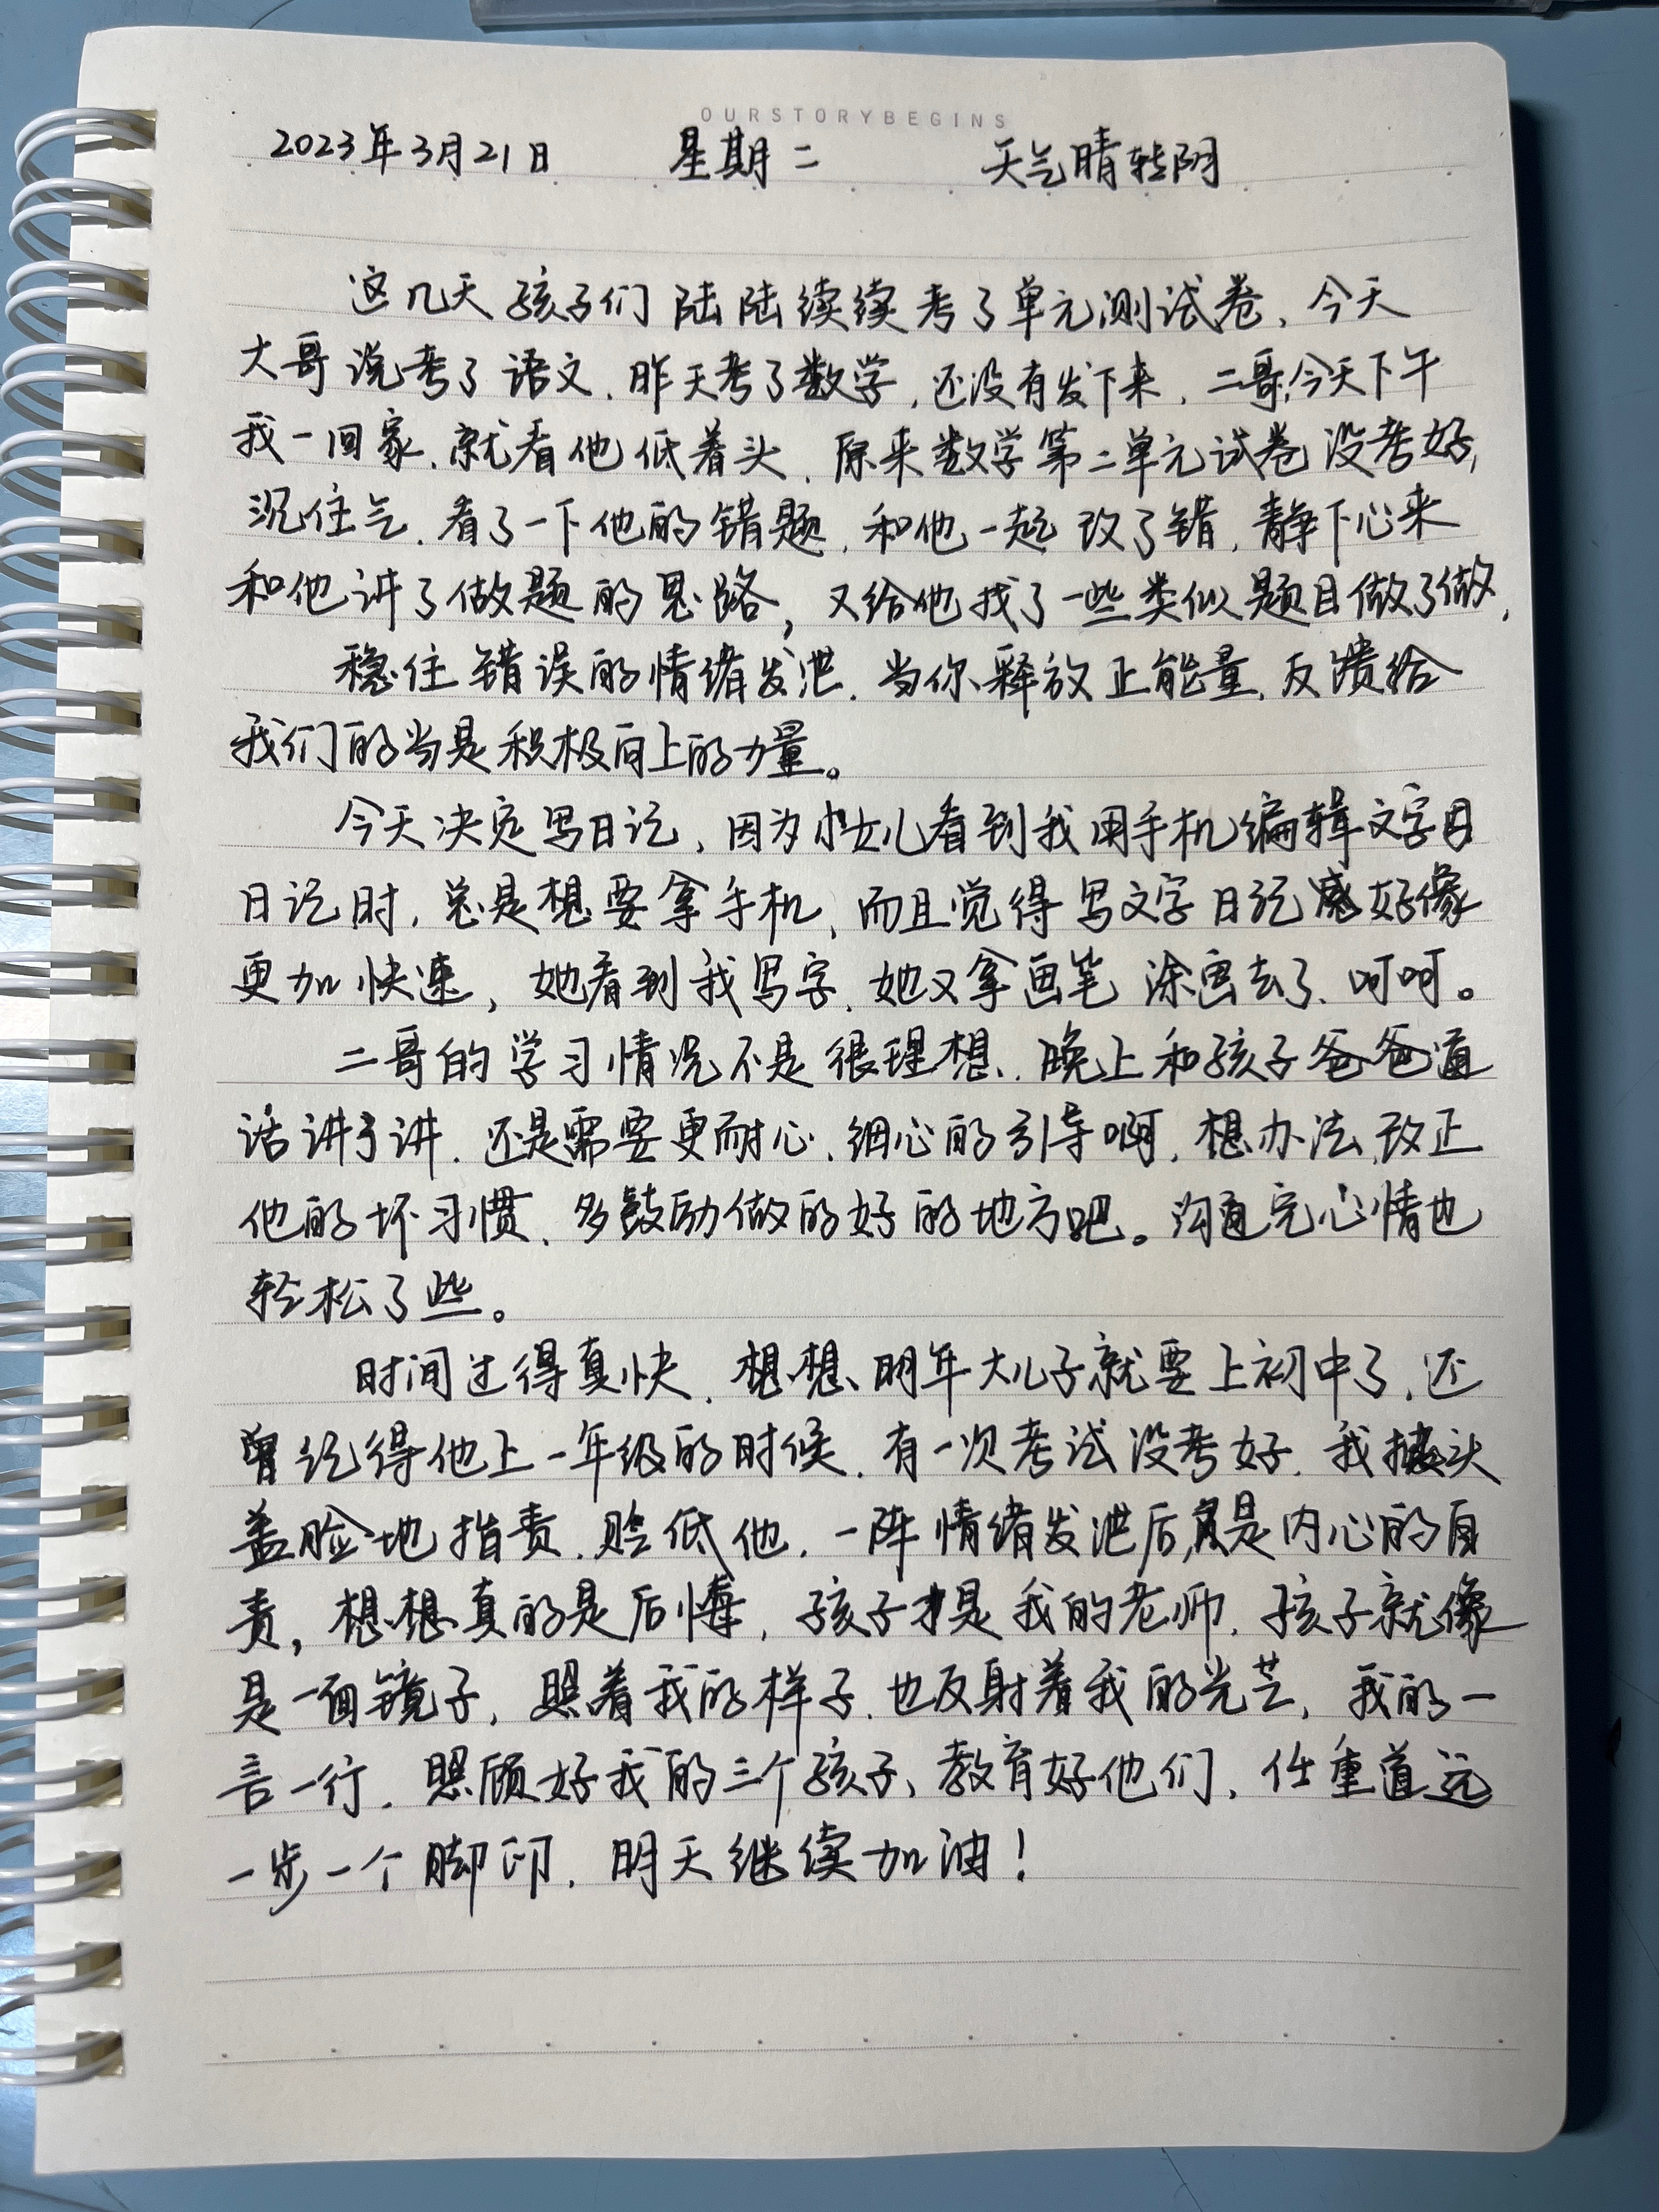 OURSTORYBEGINS
2023年3月21日 星期二 天气晴转阴
这几天孩子们陆陆续续考了单元测试卷,今天
大哥说考了语文,昨天考了数学,还没有发下来,二哥,今天下午
我一回家,就看他低着头,原来数学第二单元试卷没考好,
沉住气,看了一下他的错题,和他一起改了错,静下心来
和他讲了做题的思路,又给他找了一些类似题目做了做,
稳住错误的情绪发泄,当你释放正能量,反馈给
我们的当是积极向上的力量。
今天决定写日记,因为小女儿看到我用手机编辑文字日
日记时,总是想要拿手机,而且觉得写文字日记感好像
更加快速,她看到我写字,她又拿画笔涂画去了,呵呵。
二哥的学习情况不是很理想,晚上和孩子爸爸通
话讲了讲,还是需要更耐心,细心的引导啊,想办法,改正
他的坏习惯,多鼓励做的好的地方吧。沟通完心情也
轻松了些。
时间过得真快,想想,明年大儿子就要上初中了,还
曾记得他上一年级的时候,有一次考试没考好,我披头
盖脸地指责,贬低他,一阵情绪发泄后,是内心的自
责,想想真的是后悔,孩子才是我的老师,孩子就像
是一面镜子,照着我的样子,也反射着我的光芒,我的一
言一行,照顾好我的三个孩子,教育好他们,任重道远
一步一个脚印,明天继续加油!